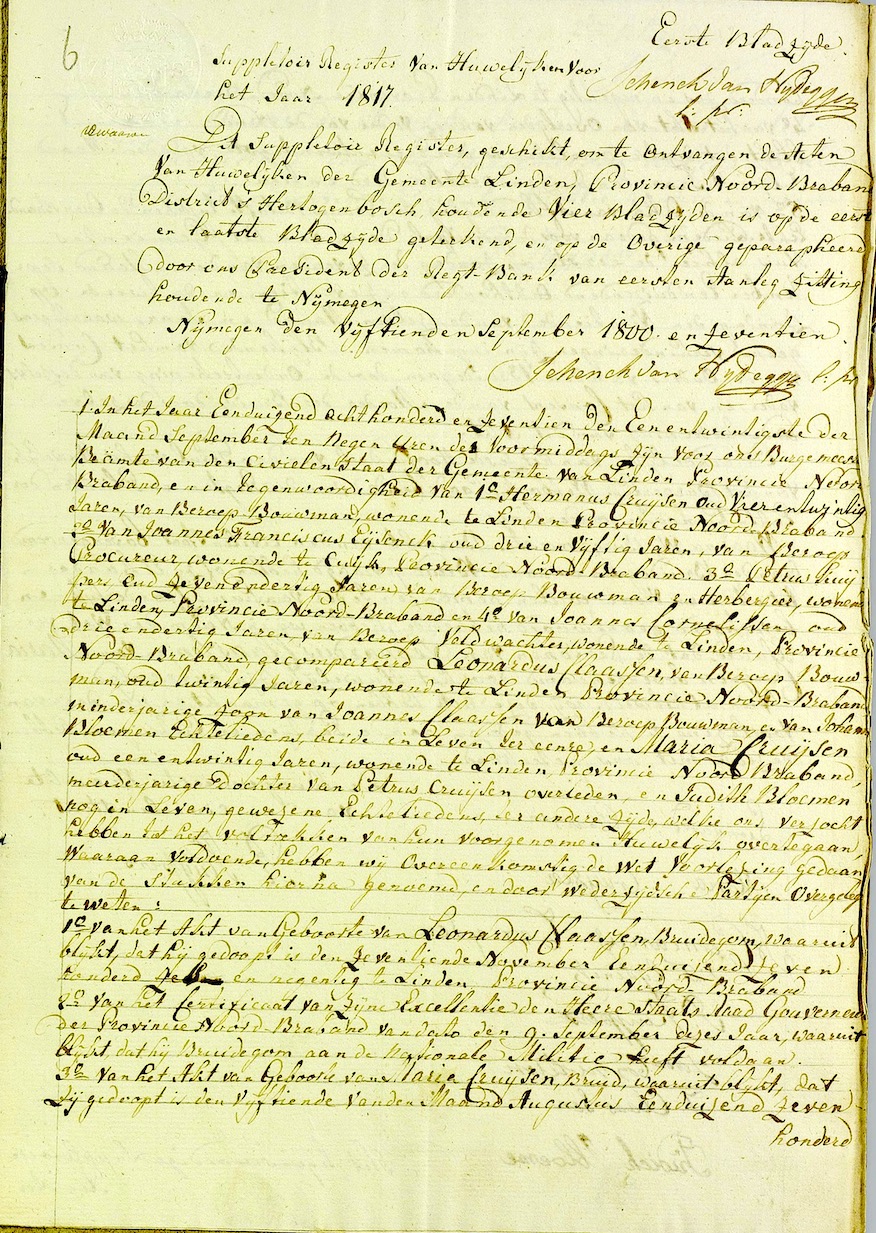 6
Eerste Bladzyde.
Suppletoir Register van Huwelyken voor
het Jaar 1817.
Schenck van Nydeggen
Dit Suppletoir Register, geschikt, om te ontvangen de Acten
van Huwelyken der Gemeente Linden, Provincie Noord-Braband
District 's Hertogenbosch, houdende Vier Bladzyden is op de eerste
en laatste Bladzyde getekend, en op de Overige geparapheerd
door ons President der Regt-Bank van eersten Aanleg Zitting
houdende te Nymegen
Nymegen den Vyftienden September 1800 en Zeventien.
Schenck van Nydeggen
1. In het Jaar Eenduizend achthonderd en Zeventien den Een entwintigste der
Maand September ten Negen Uren des Voormiddags zyn voor ons Burgemeester
Beämte van den Civielen Staat der Gemeente van Linden Provincie Noord
Braband, en in tegenwoordigheid van 1e Hermanus Cruijsen oud Vier entwintig
Jaren, van Beroep Bouwman, wonende te Linden Provincie Noord-Braband
2e Van Joannes Franciscus Eijsenck oud drie en Vyftig Jaren, van Beroep
Procureur, wonende te Cuijk, Provincie Noord-Braband. 3e Petrus Kuij
pers Oud Zevenendertig Jaren van Beroep Bouwman en Herbergier, wonende
te Linden, Provincie Noord-Braband en 4e van Joannes Cornelissen oud
drie endertig Jaren, van Beroep Veldwachter, wonende te Linden, Provincie
Noord-Braband, gecompareerd Leonardus Claassen, van Beroep Bouw-
man, oud twintig Jaren, wonende te Linden Provincie Noord-Braband
minderjarige Zoon van Joannes Claassen van Beroep Bouwman, en van Johanna
Bloemen Echteliedens, beide in Leven ter eenre, en Maria Cruijsen
oud een entwintig Jaren, wonende te Linden, Provincie Noord Braband,
meerderjarige Dochter van Petrus Cruijsen overleden, en Judith Bloemen
nog in Leven, gewezene Echteliedens, ter andere Zyde, welke ons verzocht
hebben tot het voltrekken van hun voorgenomen Huwelyk overtegaan,
Waaraan voldoende, hebben wy Overeenkomstig de Wet Voorlezing gedaan
van de Stukken hierna genoemd, en door wederzydsche Partyen Overgelegd
te weten:
1e van het Akt van Geboorte van Leonardus Claassen, Bruidegom, waaruit
blykt, dat hij gedoopt is den Zeventiende November Eenduizend Zeven
honderd en negentig te Linden Provincie Noord-Braband
2e Van het Certificaat van Zyne Excellentie den Heere Staats Raad Gouverneur
der Provincie Noord-Braband van dato den 9. September dezes Jaar, waaruit
blykt, dat hij Bruidegom aan de Nationale Militie heeft voldaan.
3e Van het Akt van Geboorte van Maria Cruijsen, Bruid, waaruit blykt, dat
Zy gedoopt is den Vyftiende van den Maand Augustus Eenduizend Zeven
honderd